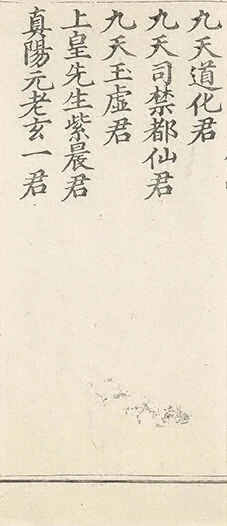 九天道化君
九天司禁都仙君
九天玉虛君
上皇先生紫晨君
真陽元老玄一君